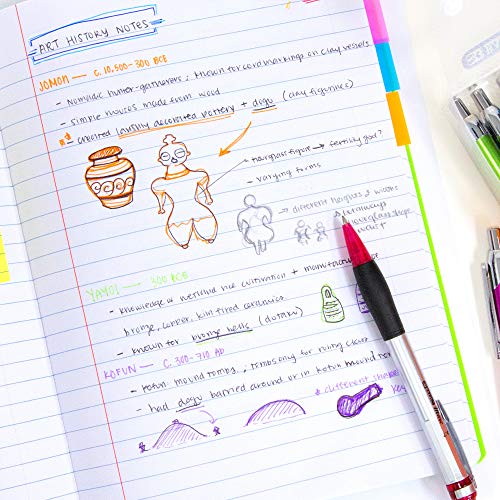 ART HISTORY NOTES
JOMON — C. 10,500-300 BCE
- Nomadic hunter-gatherers; known for cord markings on clay vessels
- simple houses made from wood
created lavishly decorated pottery + dogu (clay figurines)
hourglass figure → fertility god?
- varying forms
→ different heights & widths
always
hourglass shape
waist
YAYOI — 300 BCE
- knowledge of wet-land rice cultivation + manufacture
bronze, copper, kiln fired ceramics
- known for bronze bells (dotaku)
KOFUN — C. 300-710 AD
- Kofun: mound tombs; tombs only for ruling class
- had dogu buried around or in kofun mound
* different shapes
key